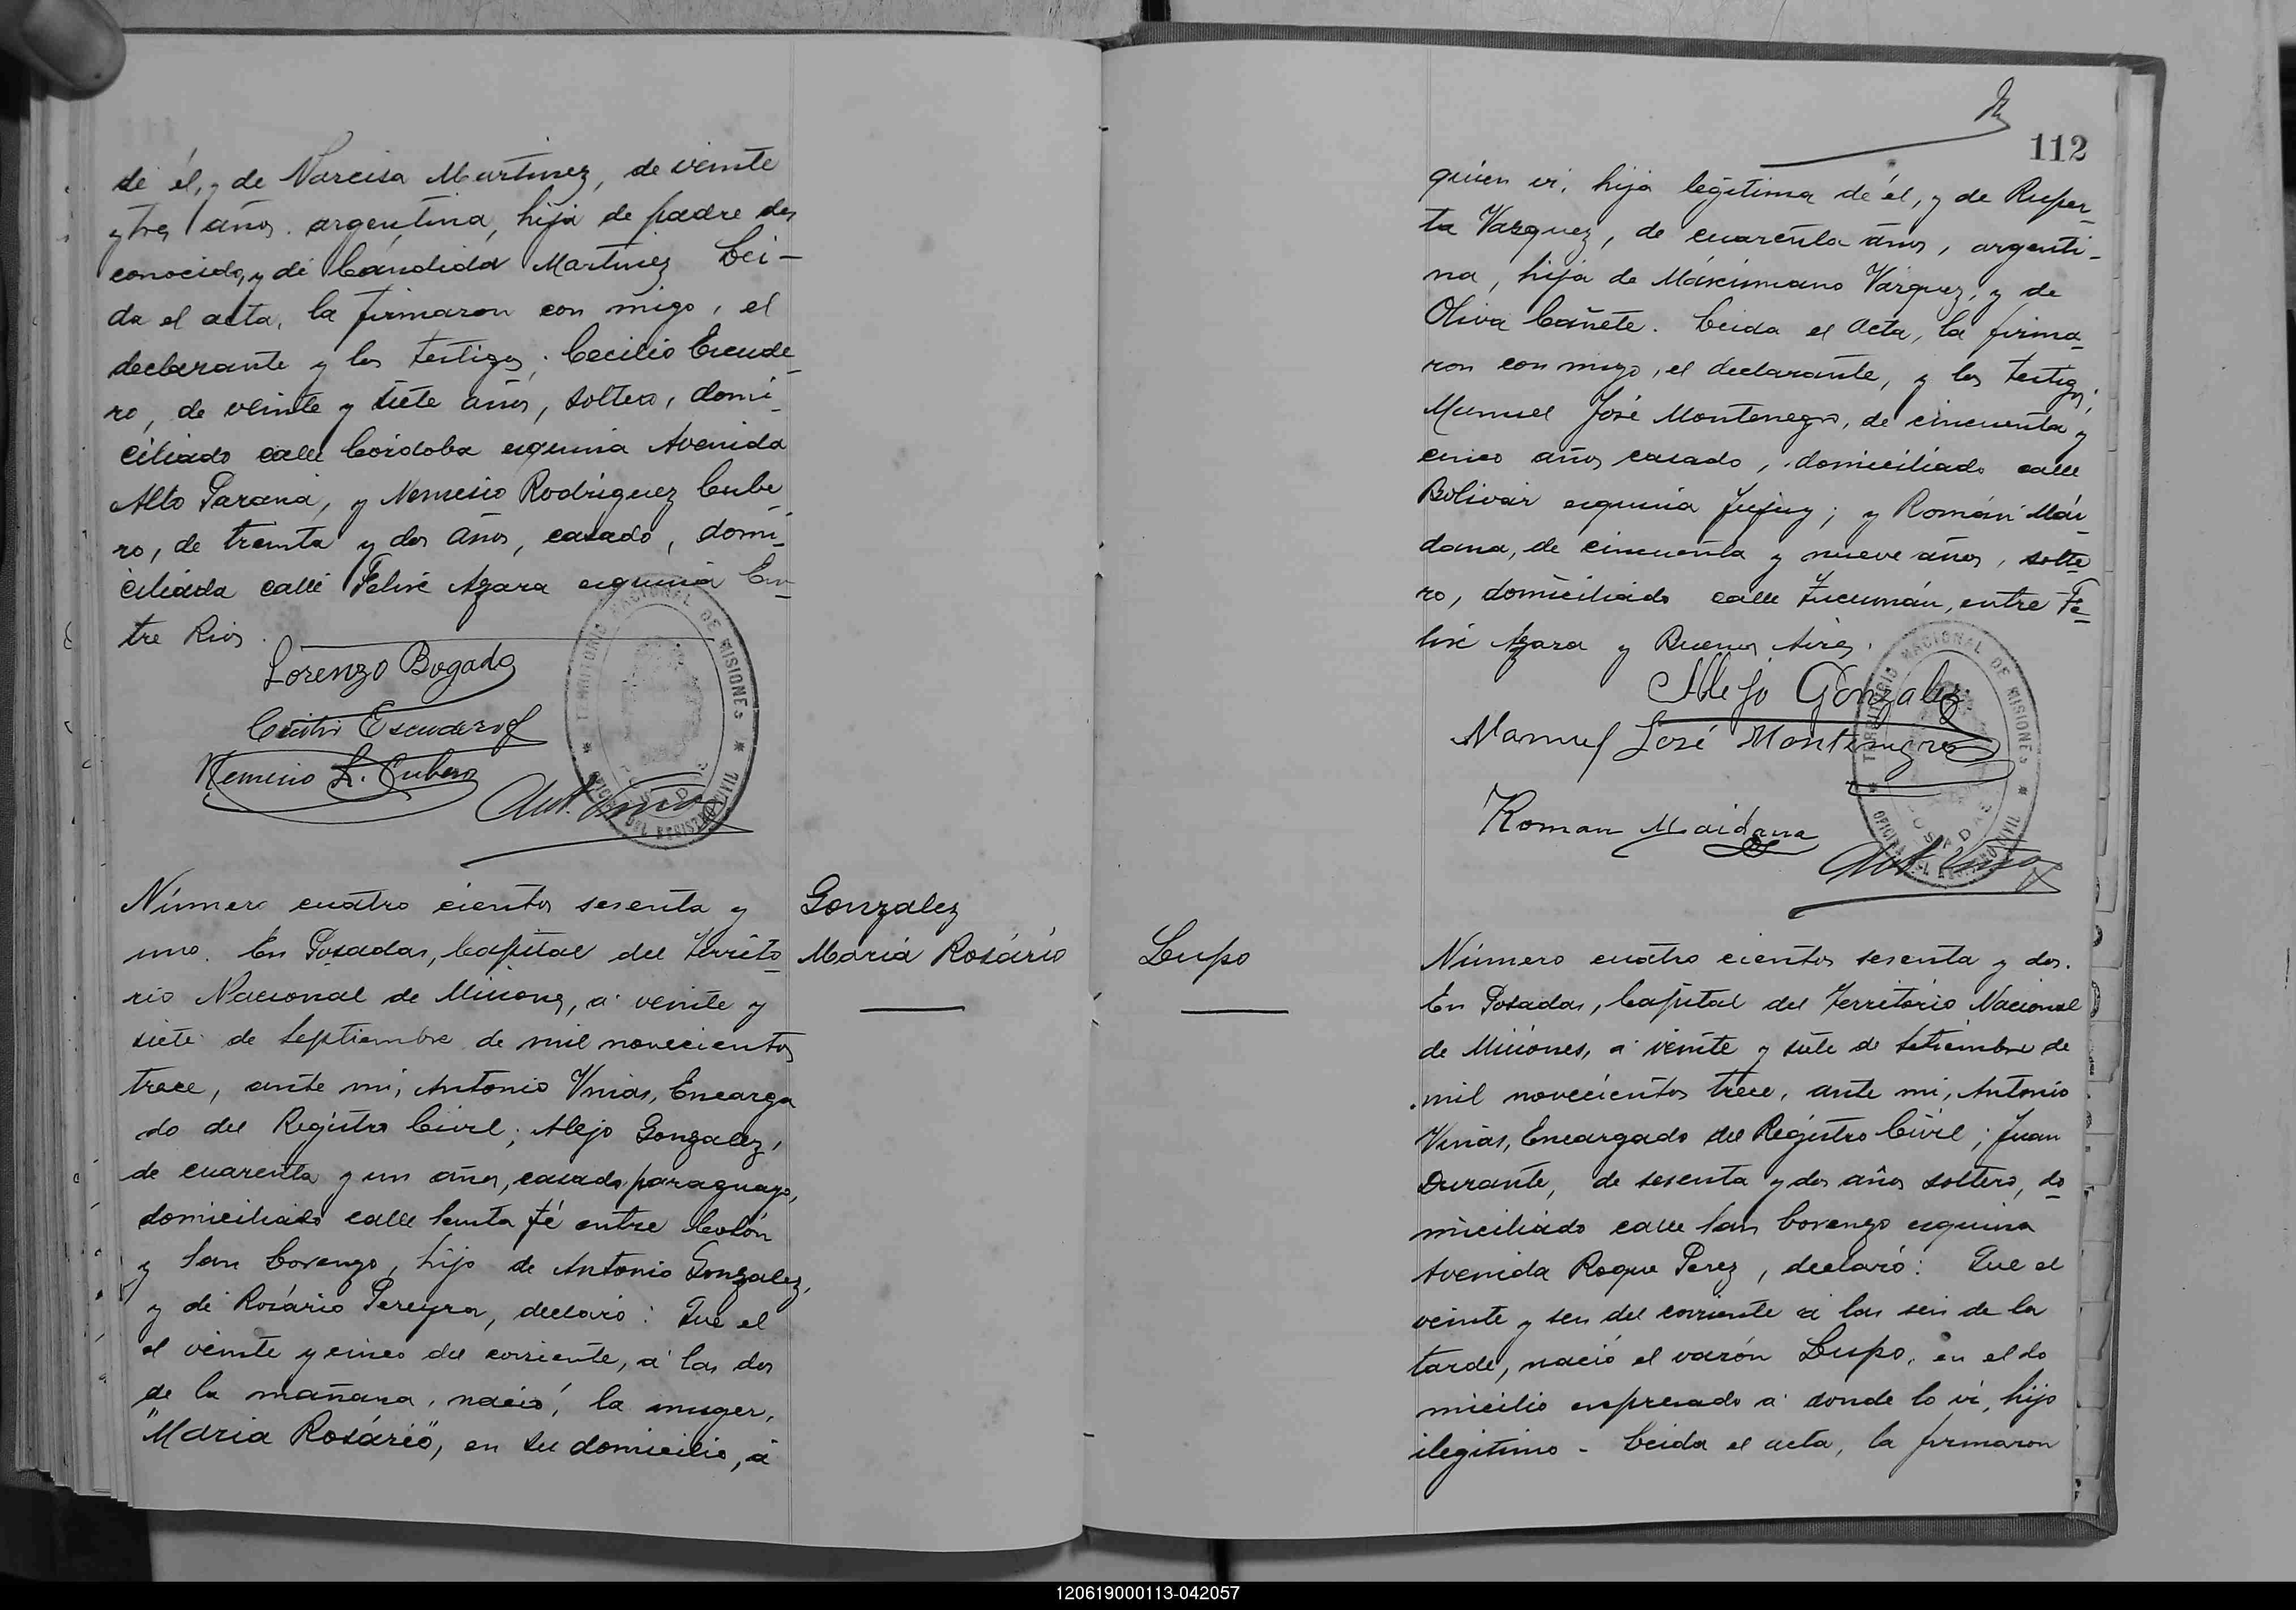 de él, y de Narcisa Martinez, de veinte
y tres años. argentina, hija de padre des
conocido, y de Cándida Martinez Lei-
da el acta, la firmaron con migo, el
declarante y los testigos; Cecilio Escude
ro, de veinte y siete años, soltero, domi-
ciliado calle Córdoba esquina Avenida
Alto Paraná, y Nemesio Rodriguez Cube
ro, de treinta y dos años, casado, domi-
ciliada calle Felix Azara esquina En-
tre Rios.
Lorenzo Bogado
Escudero
Nemesio R. Cubero
Ant. Vinas
TERRITORIO NACIONAL DE MISIONES
OFICINA DEL REGISTRO CIVIL
Número cuatro cientos sesenta y
uno. En Posadas, Capital del Territo-
rio Nacional de Misiones, á veinte y
siete de Septiembre de mil novecientos
trece, ante mi, Antonio Vinas, Encarga
do del Registro Civil; Alejo Gonzalez,
de cuarenta y un años, casado, paraguayo,
domiciliado calle Santa fé entre Colón
y San Lorenzo, hijo de Antonio Gonzalez,
y de Rosário Pereyra, declaró: Que el
el veinte y cinco del corriente, á las dos
de la mañana, nació, la muger,
"Maria Rosário", en su domicilio, á
Gonzalez
Maria Rosário
112
quien vi, hija legitima de él, y de Ruper-
ta Vazquez, de cuarenta años, argenti-
na, hija de Máximiano Vázquez, y de
Oliva Cañete. Leida el acta, la firma-
ron con migo, el declarante, y los testigos;
Manuel José Montenegro, de cincuenta y
cinco años casado, domiciliado calle
Bolivar esquina Jujuy; y Román Mái
dana, de cincuenta y nueve años, solte
ro, domiciliado calle Tucumán, entre Fé-
lix Azara y Buenos Aires.
Alejo Gonzalez
Manuel José Montenegro
Roman Maidana
Ant. Vinas
TERRITORIO NACIONAL DE MISIONES
POSADAS
OFICINA DEL REGISTRO CIVIL
Lupo
Número cuatro cientos sesenta y dos.
En Posadas, Capital del Territorio Nacional
de Misiones, á veinte y siete de Setiembre de
mil novecientos trece, ante mi, Antonio
Vinas, Encargado del Registro Civil; Juan
Durante, de sesenta y dos años soltero, do-
miciliado calle San Lorenzo esquina
Avenida Roque Perez, declaró: Que el
veinte y seis del corriente á las seis de la
tarde, nació el varón Lupo, en el do
micilio expresado á donde lo vi, hijo
ilegitimo - Leida el acta, la firmaron
120619000113-042057